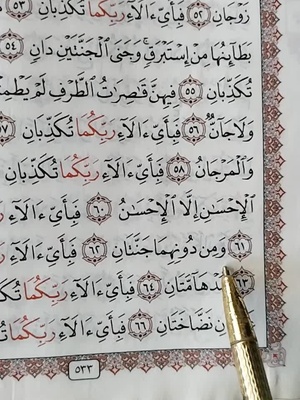 زَوْجَانِ ٥٢ فَبِأَيِّ ءَالَآءِ رَبِّكُمَا تُكَذِّبَانِ ٥٣
بَطَآئِنُهَا مِنْ إِسْتَبْرَقٍ ۚ وَجَنَى ٱلْجَنَّتَيْنِ دَانٍ ٥٤
تُكَذِّبَانِ ٥٥ فِيهِنَّ قَٰصِرَٰتُ ٱلطَّرْفِ لَمْ
وَلَا جَآنٌّ ٥٦ فَبِأَيِّ ءَالَآءِ رَبِّكُمَا تُكَذِّبَانِ ٥٧
وَٱلْمَرْجَانُ ٥٨ فَبِأَيِّ ءَالَآءِ رَبِّكُمَا تُكَذِّبَانِ
ٱلْإِحْسَٰنِ إِلَّا ٱلْإِحْسَٰنُ ٦٠ فَبِأَيِّ ءَالَآءِ
٦١ وَمِن دُونِهِمَا جَنَّتَانِ ٦٢ فَبِأَيِّ ءَالَآءِ
٦٣ مُدْهَآمَّتَانِ ٦٤ فَبِأَيِّ ءَالَآءِ رَبِّكُمَا
نَضَّاخَتَانِ ٦٦ فَبِأَيِّ ءَالَآءِ رَبِّكُمَا
٥٣٣